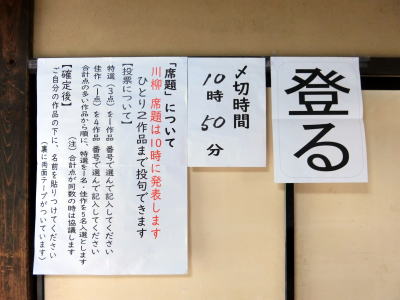 登る
〆切時間
10時50分
「席題」について
川柳 席題は10時に発表します
ひとり2作品まで投句できます
【投票について】
特選(3点)を1作品 番号で選んで記入してください
佳作(1点)を4作品 番号で選んで記入してください
合計点の多い作品から順に、特選を1名 佳作を5名入選とします
(注)合計点が同数の時は協議します
【確定後】
ご自分の作品の下に、名前を貼りつけてください
(裏に両面テープがついています)